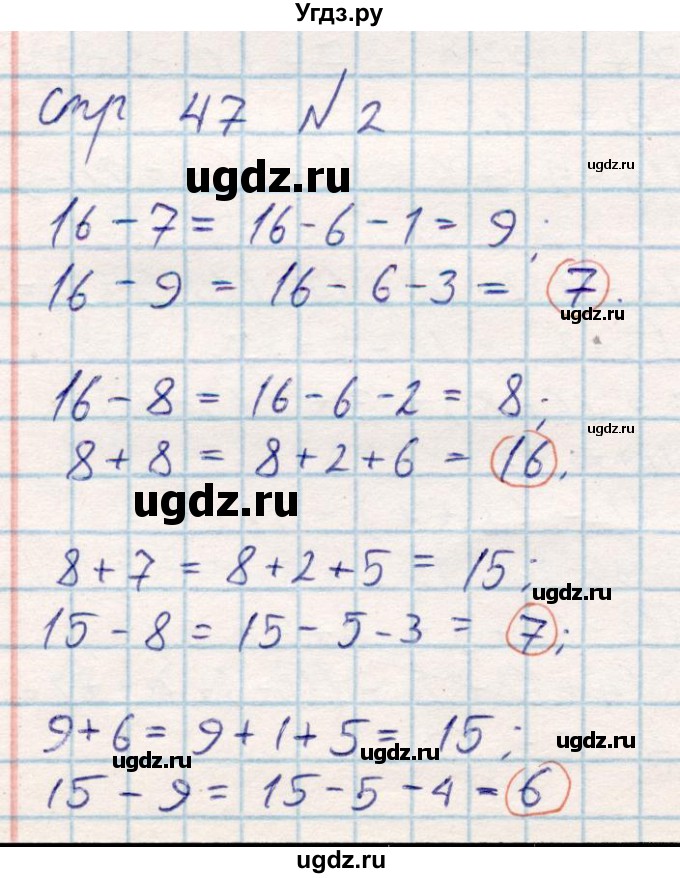 Угдз.ру
стр 47 №2
ugdz.ru
ugdz.ru
16-7= 16-6-1= 9;
16-9 = 16-6-3= 7.
ugdz.ru
16-8= 16-6-2 = 8;
ugdz.ru
8+8 = 8+2+6 = 16;
ugdz.ru
8+7 = 8+2+5 = 15;
ugdz.ru
15-8 = 15-5-3 = 7;
9+6= 9+1+5= 15;
ugdz.ru
ugdz.ru
ugdz.ru
15-9= 15-5-4=6
ugdz.ru